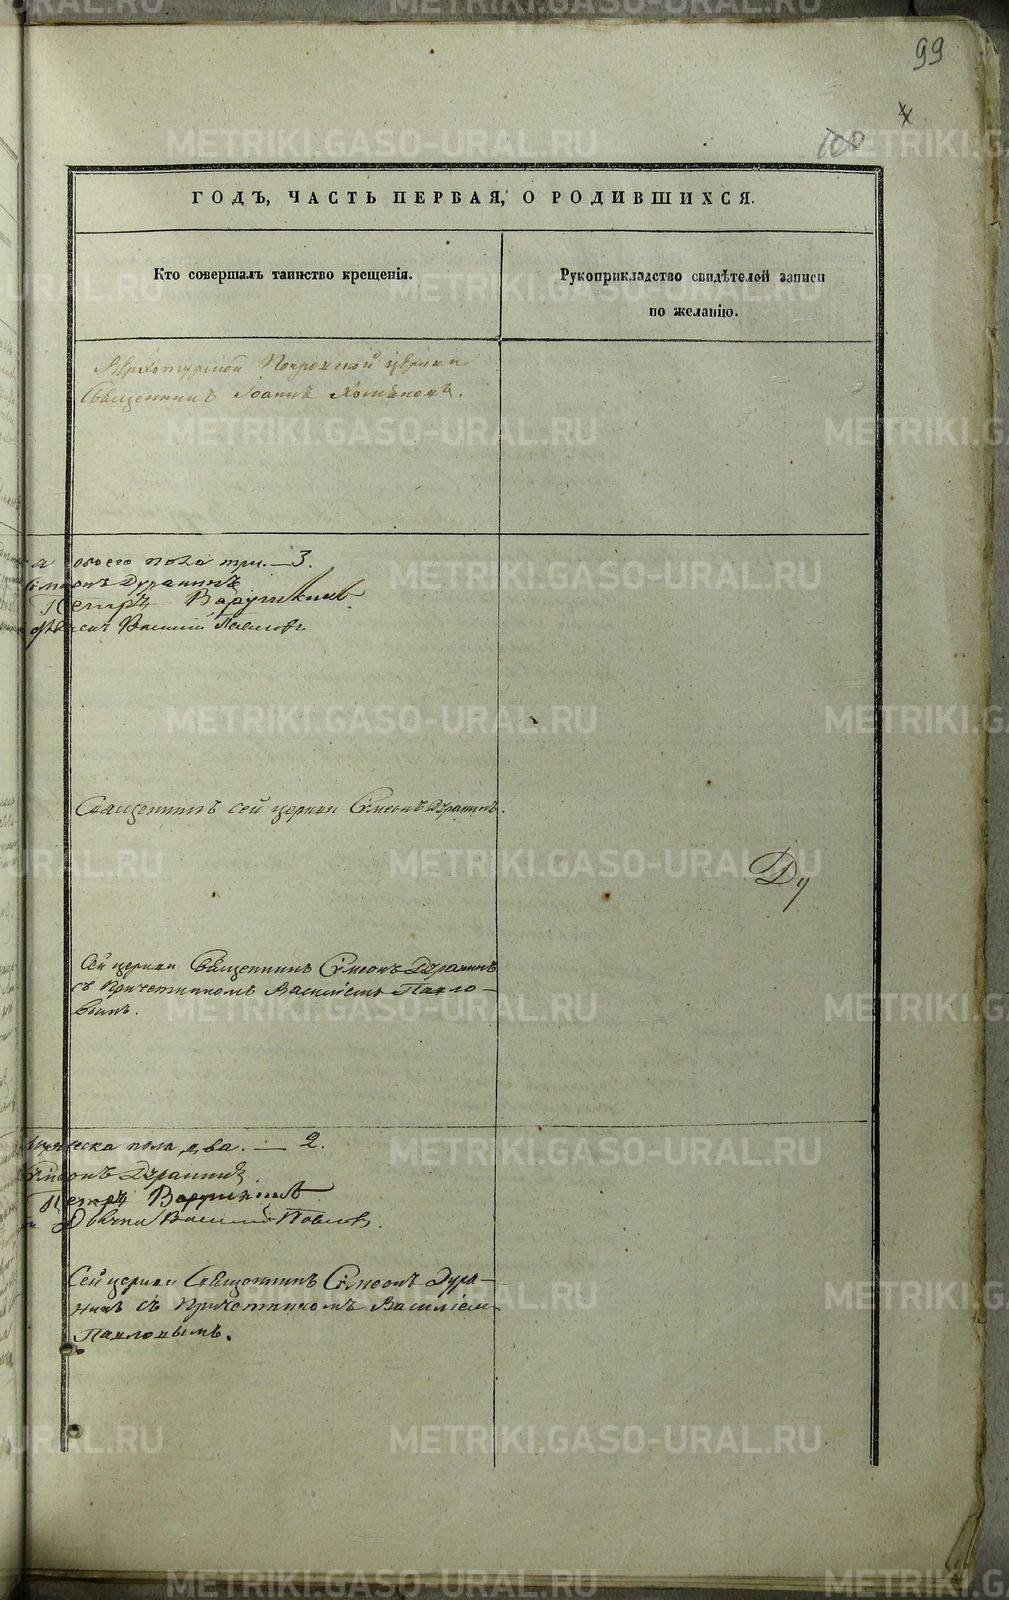 99
100
ГОДЪ, ЧАСТЬ ПЕРВАЯ, О РОДИВШИХСЯ.
Кто совершалъ таинство крещенія.
Рукоприкладство свидѣтелей записи
по желанію.
Верхотурской Покровской церкви
Священникъ Іоаннъ Хомяковъ.
а обоего пола три. — 3.
Симеонъ Дуранинъ
Петръ
Василій Павловъ
Священникъ сей церкви Симеонъ Дуранинъ.
Ду
Сей церкви Священникъ Симеонъ Дуранинъ
съ Причетникомъ Василіемъ Павло-
вымъ.
мужеска пола два. — 2.
Симеонъ Дуранинъ.
Петръ
Василій Павловъ.
Сей церкви Священникъ Симеонъ Дура-
нинъ съ Причетникомъ Василіемъ
Павловымъ.
METRIKI.GASO-URAL.RU